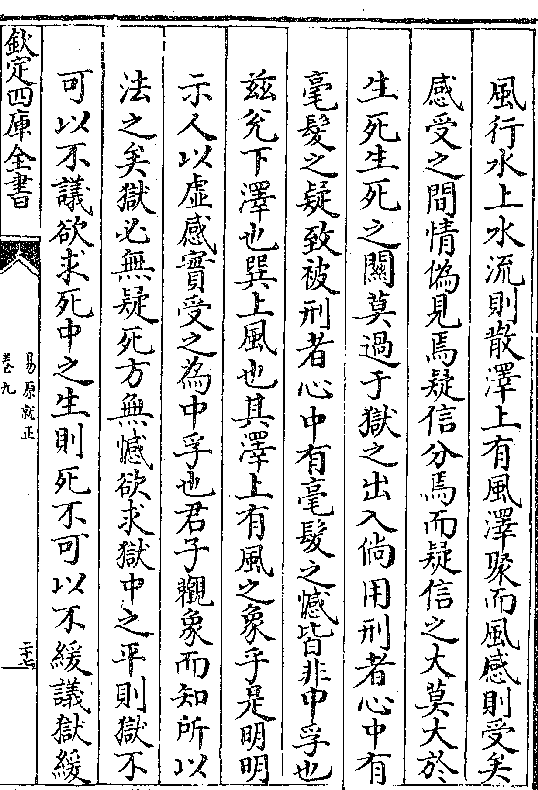 風行水上水流則散澤上有風澤聚而風感則受矣
感受之間情偽見焉疑信分焉而疑信之大莫大於
生死生死之關莫過于獄之出入倘用刑者心中有
毫髮之疑致被刑者心中有毫髮之憾皆非中孚也
兹兊下澤也巽上風也其澤上有風之象乎是明明
示人以虛感實受之為中孚也君子觀象而知所以
法之矣獄必無疑死方無憾欲求獄中之平則獄不
可以不議欲求死中之生則死不可以不緩議獄緩
欽定四庫全書
易原就正
卷九
二十七